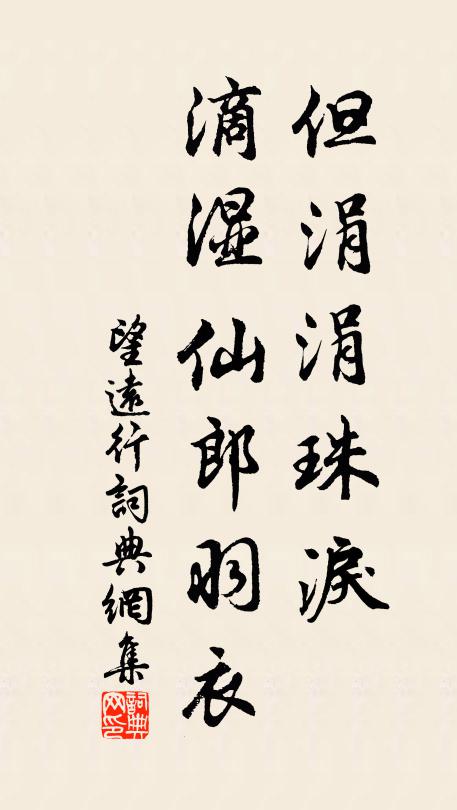 但涓涓珠淚
滴濕仙郎羽衣
望遠行詞典網集
詞典网印